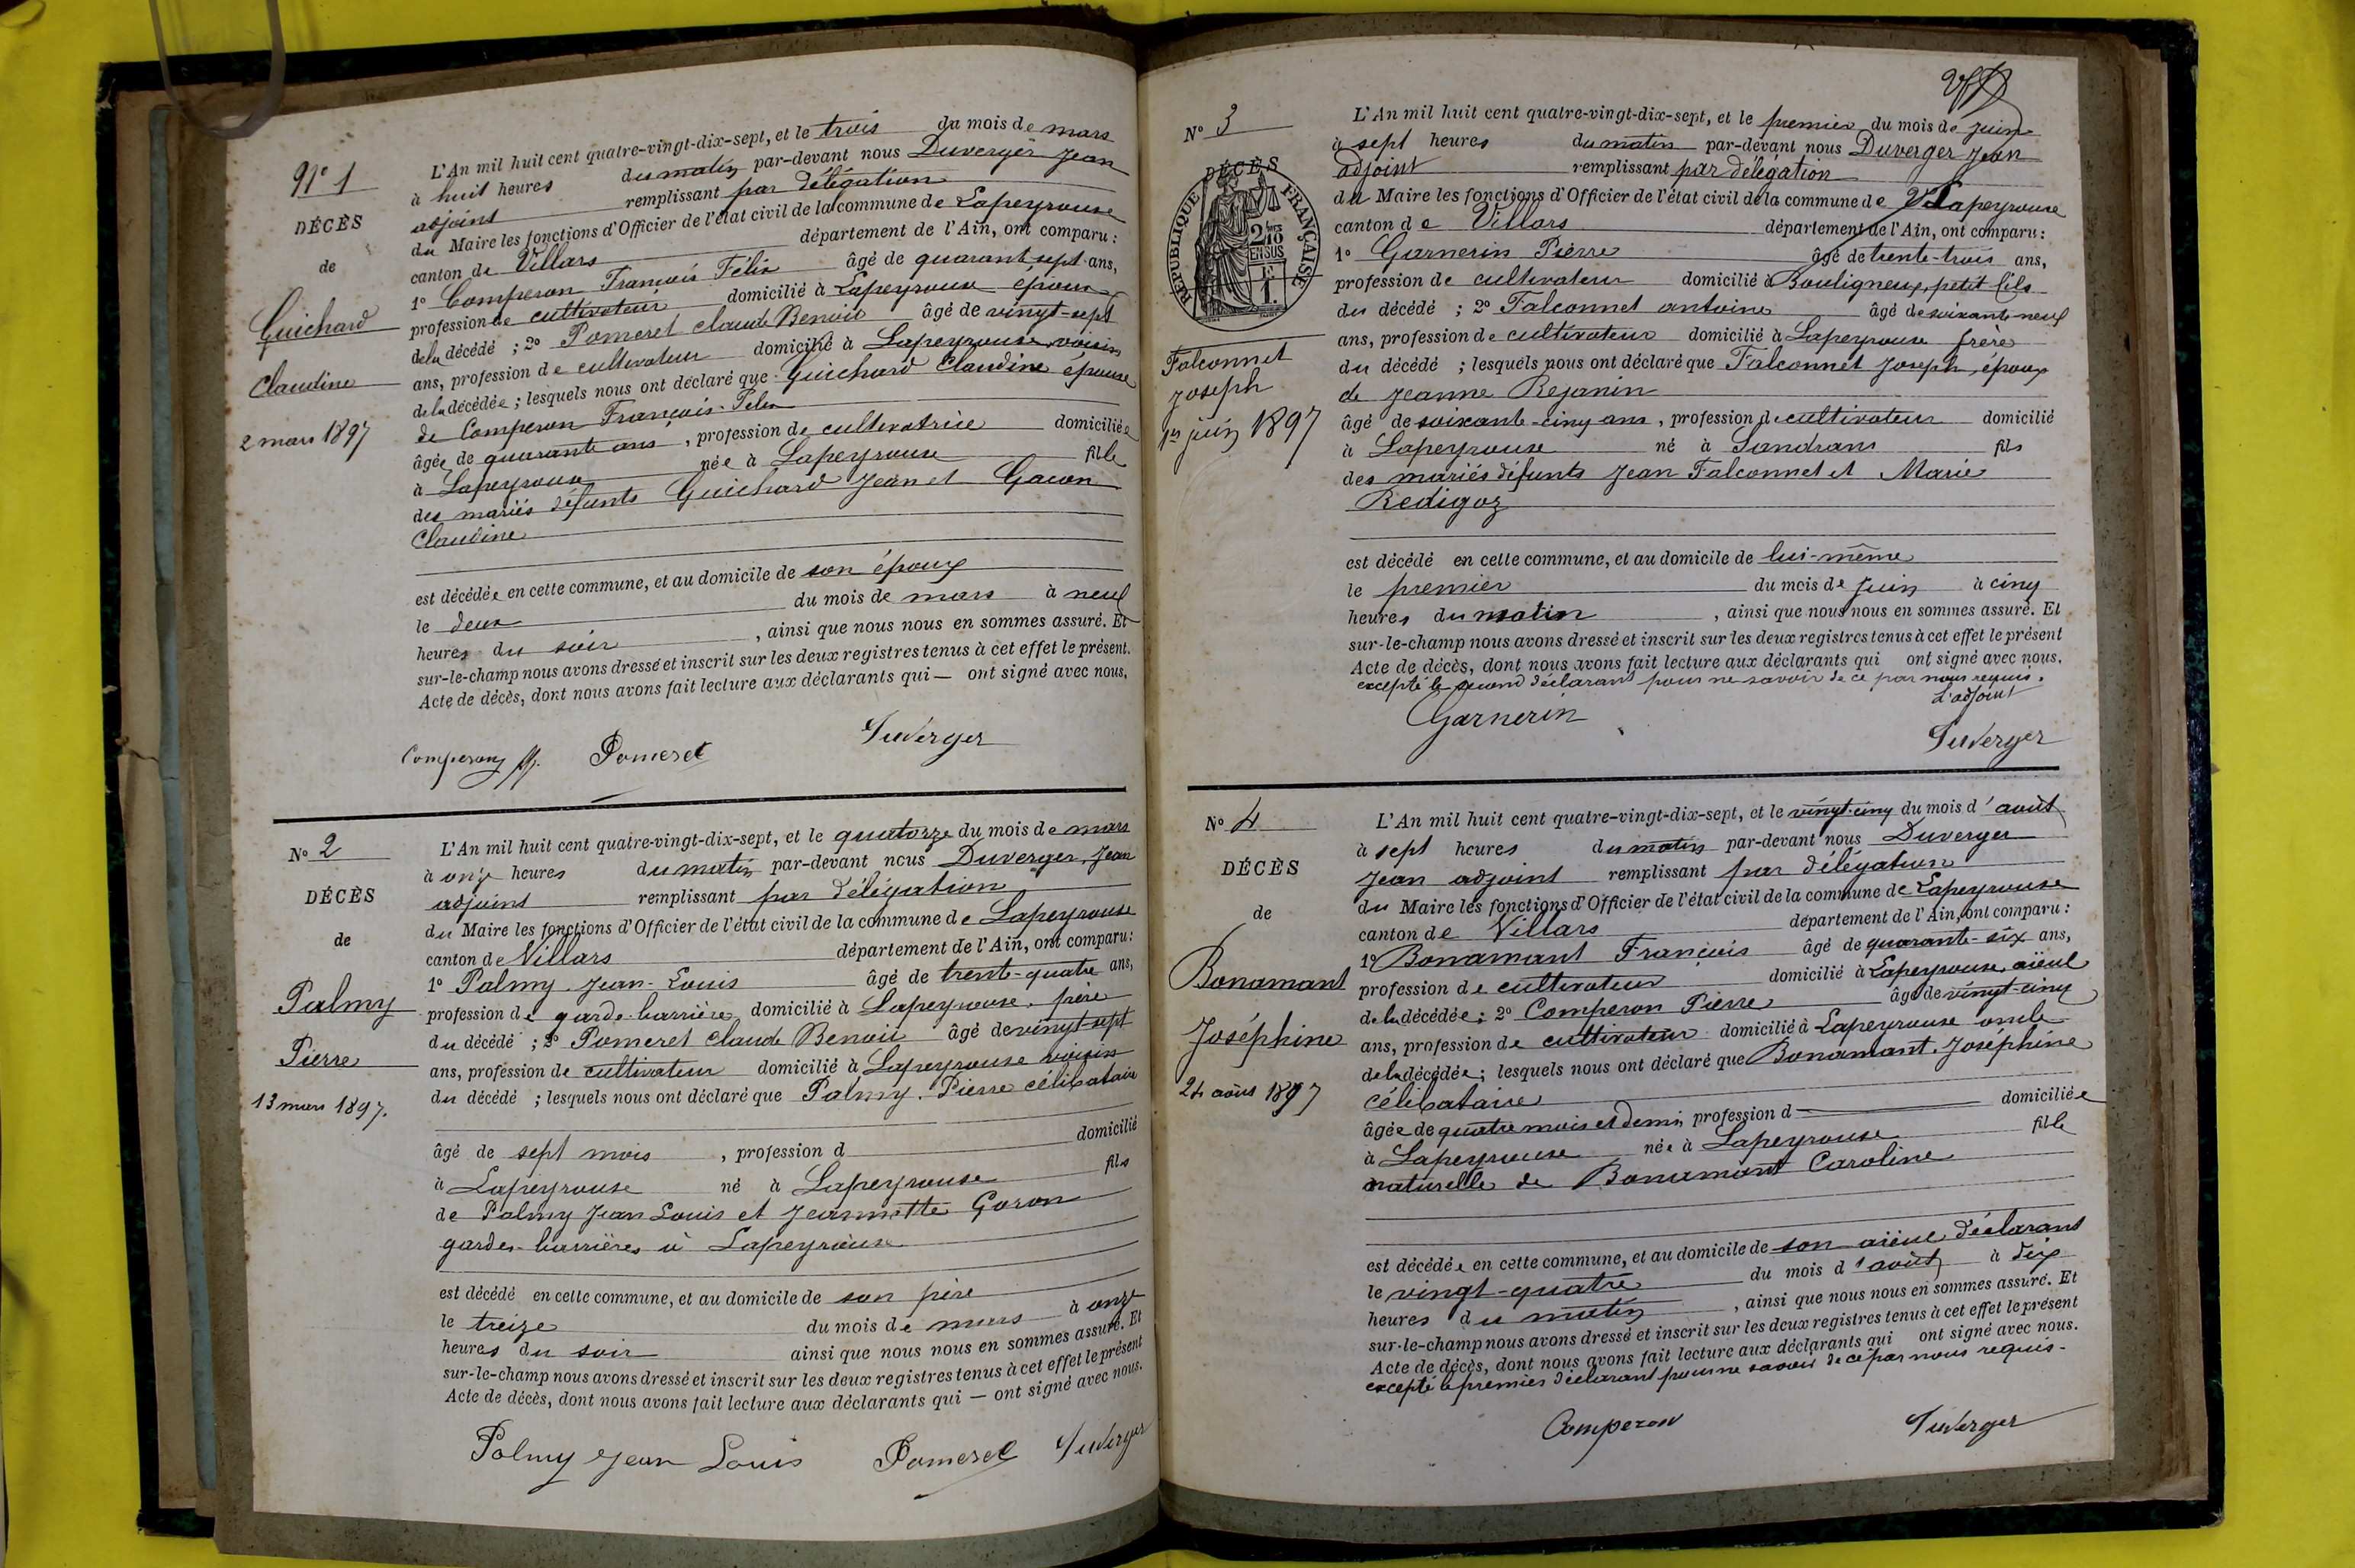 N° 1
DÉCÈS
de
Guichard
Claudine
2 mars 1897
L'An mil huit cent quatre-vingt-dix-sept, et le trois du mois de mars
à huit heures du matin par-devant nous Duverger Jean
adjoint remplissant par délégation
du Maire les fonctions d'Officier de l'état civil de la commune de Lapeyrouse
canton de Villars département de l'Ain, ont comparu :
1° Comperon François Félix âgé de quarant sept ans,
profession de cultivateur domicilié à Lapeyrouse époux
de la décédé ; 2° Pomeret Claude Benoit âgé de vingt-sept
ans, profession de cultivateur domicilié à Lapeyrouse voisin
de la décédée ; lesquels nous ont déclaré que Guichard Claudine épouse
de Comperon François-Felix
âgée de quarante ans, profession de cultivatrice domiciliée
à Lapeyrouse née à Lapeyrouse fille
des mariés défunts Guichard Jean et Gacon
Claudine
est décédée en cette commune, et au domicile de son époux
le deux du mois de mars à neuf
heures du soir, ainsi que nous nous en sommes assuré. Et
sur-le-champ nous avons dressé et inscrit sur les deux registres tenus à cet effet le présent.
Acte de décès, dont nous avons fait lecture aux déclarants qui — ont signé avec nous.
Comperon ff. Pomeret Duverger
N° 2
DÉCÈS
de
Palmy
Pierre
13 mars 1897.
L'An mil huit cent quatre-vingt-dix-sept, et le quatorze du mois de mars
à onze heures du matin par-devant nous Duverger Jean
adjoint remplissant par délégation
du Maire les fonctions d'Officier de l'état civil de la commune de Lapeyrouse
canton de Villars département de l'Ain, ont comparu :
1° Palmy Jean-Louis âgé de trente-quatre ans,
profession de garde-barrière domicilié à Lapeyrouse, père
du décédé ; 2° Pomeret Claude Benoit âgé de vingt-sept
ans, profession de cultivateur domicilié à Lapeyrouse voisin
du décédé ; lesquels nous ont déclaré que Palmy Pierre célibataire
âgé de sept mois, profession d domicilié
à Lapeyrouse né à Lapeyrouse fils
de Palmy Jean Louis et Jeannette Goron
gardes-barrières à Lapeyrouse
est décédé en cette commune, et au domicile de son père
le treize du mois de mars à onze
heures du soir ainsi que nous nous en sommes assuré. Et
sur-le-champ nous avons dressé et inscrit sur les deux registres tenus à cet effet le présent
Acte de décès, dont nous avons fait lecture aux déclarants qui — ont signé avec nous.
Palmy Jean Louis Pomeret Duverger
N° 3
DÉCÈS
RÉPUBLIQUE FRANÇAISE
2/10 EN SUS
1 F.
Falconnet
Joseph
1er juin 1897
L'An mil huit cent quatre-vingt-dix-sept, et le premier du mois de juin
à sept heures du matin par-devant nous Duverger Jean
adjoint remplissant par délégation
du Maire les fonctions d'Officier de l'état civil de la commune de Lapeyrouse
canton de Villars département de l'Ain, ont comparu :
1° Garnerin Pierre âgé de trente-trois ans,
profession de cultivateur domicilié à Bouligneux, petit fils
du décédé ; 2° Falconnet antoine âgé de soixante-neuf
ans, profession de cultivateur domicilié à Lapeyrouse frère
du décédé ; lesquels nous ont déclaré que Falconnet Joseph, époux
de Jeanne Rejanin
âgé de soixante-cinq ans, profession de cultivateur domicilié
à Lapeyrouse né à Sandrans fils
des mariés défunts Jean Falconnet et Marie
Redigoz
est décédé en cette commune, et au domicile de lui-même
le premier du mois de juin à cinq
heures du matin, ainsi que nous nous en sommes assuré. Et
sur-le-champ nous avons dressé et inscrit sur les deux registres tenus à cet effet le présent
Acte de décès, dont nous avons fait lecture aux déclarants qui ont signé avec nous.
excepté le second déclarant pour ne savoir de ce par nous requis.
Garnerin L'adjoint
Duverger
N° 4
DÉCÈS
de
Bonamant
Joséphine
24 août 1897
L'An mil huit cent quatre-vingt-dix-sept, et le vingt-cinq du mois d'août
à sept heures du matin par-devant nous Duverger
Jean adjoint remplissant par délégation
du Maire les fonctions d'Officier de l'état civil de la commune de Lapeyrouse
canton de Villars département de l'Ain, ont comparu :
1° Bonamant François âgé de quarante-six ans,
profession de cultivateur domicilié à Lapeyrouse, aïeul
de la décédée ; 2° Comperon Pierre âgé de vingt-cinq
ans, profession de cultivateur domicilié à Lapeyrouse oncle
de la décédée ; lesquels nous ont déclaré que Bonamant Joséphine
célibataire
âgée de quatre mois et demi, profession d domiciliée
à Lapeyrouse née à Lapeyrouse fille
naturelle de Bonamant Caroline
est décédée en cette commune, et au domicile de son aïeul déclarant
le vingt-quatre du mois d'août à dix
heures du matin, ainsi que nous nous en sommes assuré. Et
sur-le-champ nous avons dressé et inscrit sur les deux registres tenus à cet effet le présent
Acte de décès, dont nous avons fait lecture aux déclarants qui ont signé avec nous.
excepté le premier déclarant pour ne savoir de ce par nous requis-
Comperon Duverger